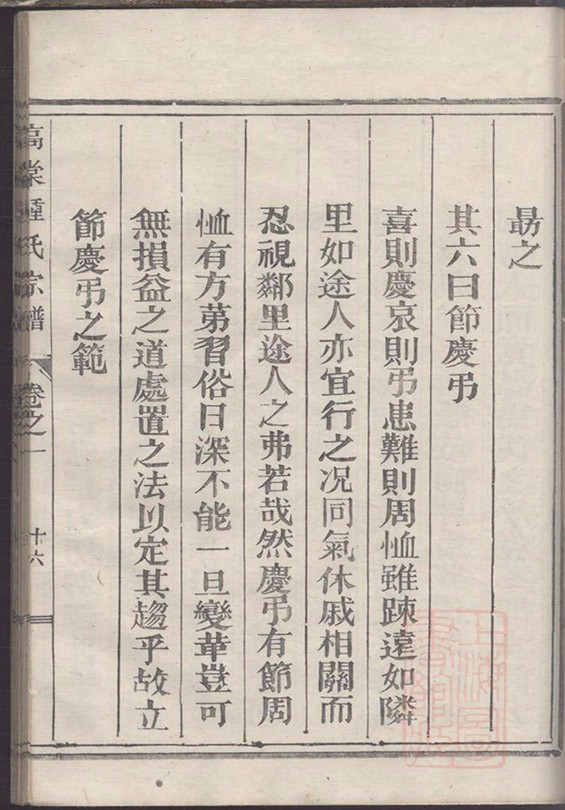 勗之
其六曰節慶弔
喜則慶哀則弔患難則周恤雖踈遠如隣
里如途人亦宜行之况同氣休戚相關而
忍視鄰里途人之弗若哉然慶弔有節周
恤有方苐習俗日深不能一旦變革豈可
無損益之道處置之法以定其趨乎故立
節慶弔之範
高棠鍾氏宗譜
卷之一
十六
上海圖書館藏